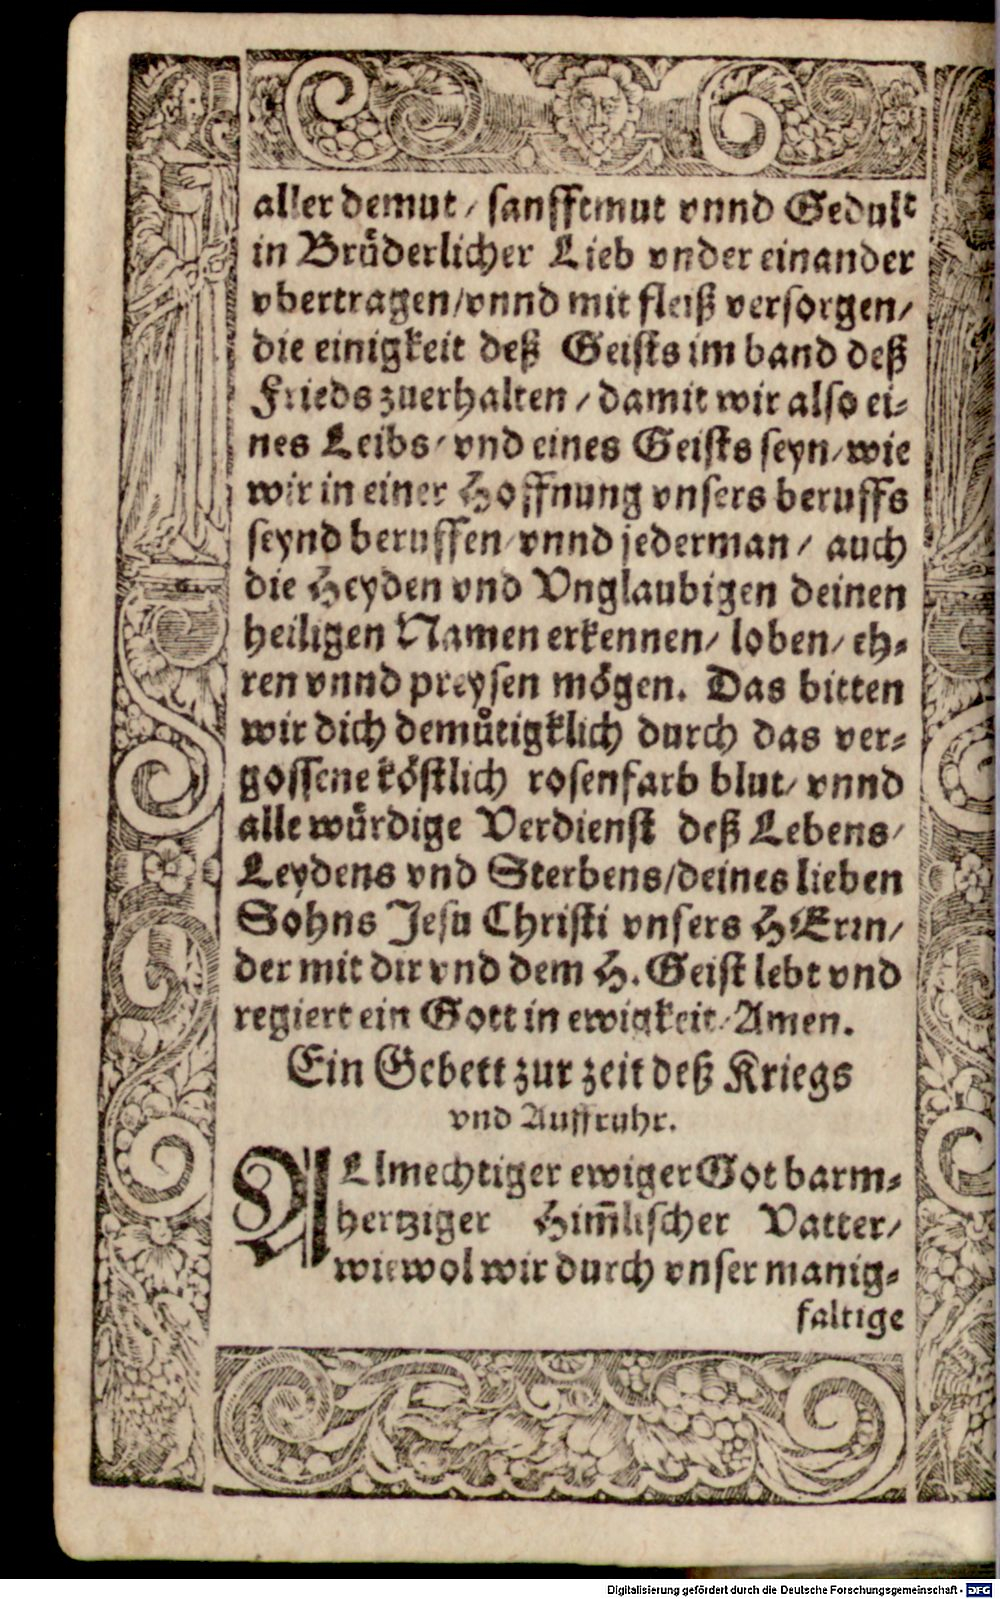 aller demut / sanfftmut vnnd Gedult
in Bruͤderlicher Lieb vnder einander
vbertragen / vnnd mit fleiß versorgen /
die einigkeit deß Geists im band deß
Frieds zuerhalten / damit wir also ei-
nes Leibs / vnd eines Geists seyn / wie
wir in einer Hoffnung vnsers beruffs
seynd beruffen / vnnd jederman / auch
die Heyden vnd Vnglaubigen deinen
heiligen Namen erkennen / loben / eh-
ren vnnd preysen moͤgen. Das bitten
wir dich demuͤtigklich durch das ver-
gossene koͤstlich rosenfarb blut / vnnd
alle wuͤrdige Verdienst deß Lebens /
Leydens vnd Sterbens / deines lieben
Sohns Jesu Christi vnsers HErrn /
der mit dir vnd dem H. Geist lebt vnd
regiert ein Gott in ewigkeit / Amen.
Ein Gebett zur zeit deß Kriegs
vnd Auffruhr.
ALlmechtiger ewiger Got barm-
hertziger Him̃lischer Vatter /
wiewol wir durch vnser manig-
faltige
Digitalisierung gefördert durch die Deutsche Forschungsgemeinschaft - DFG